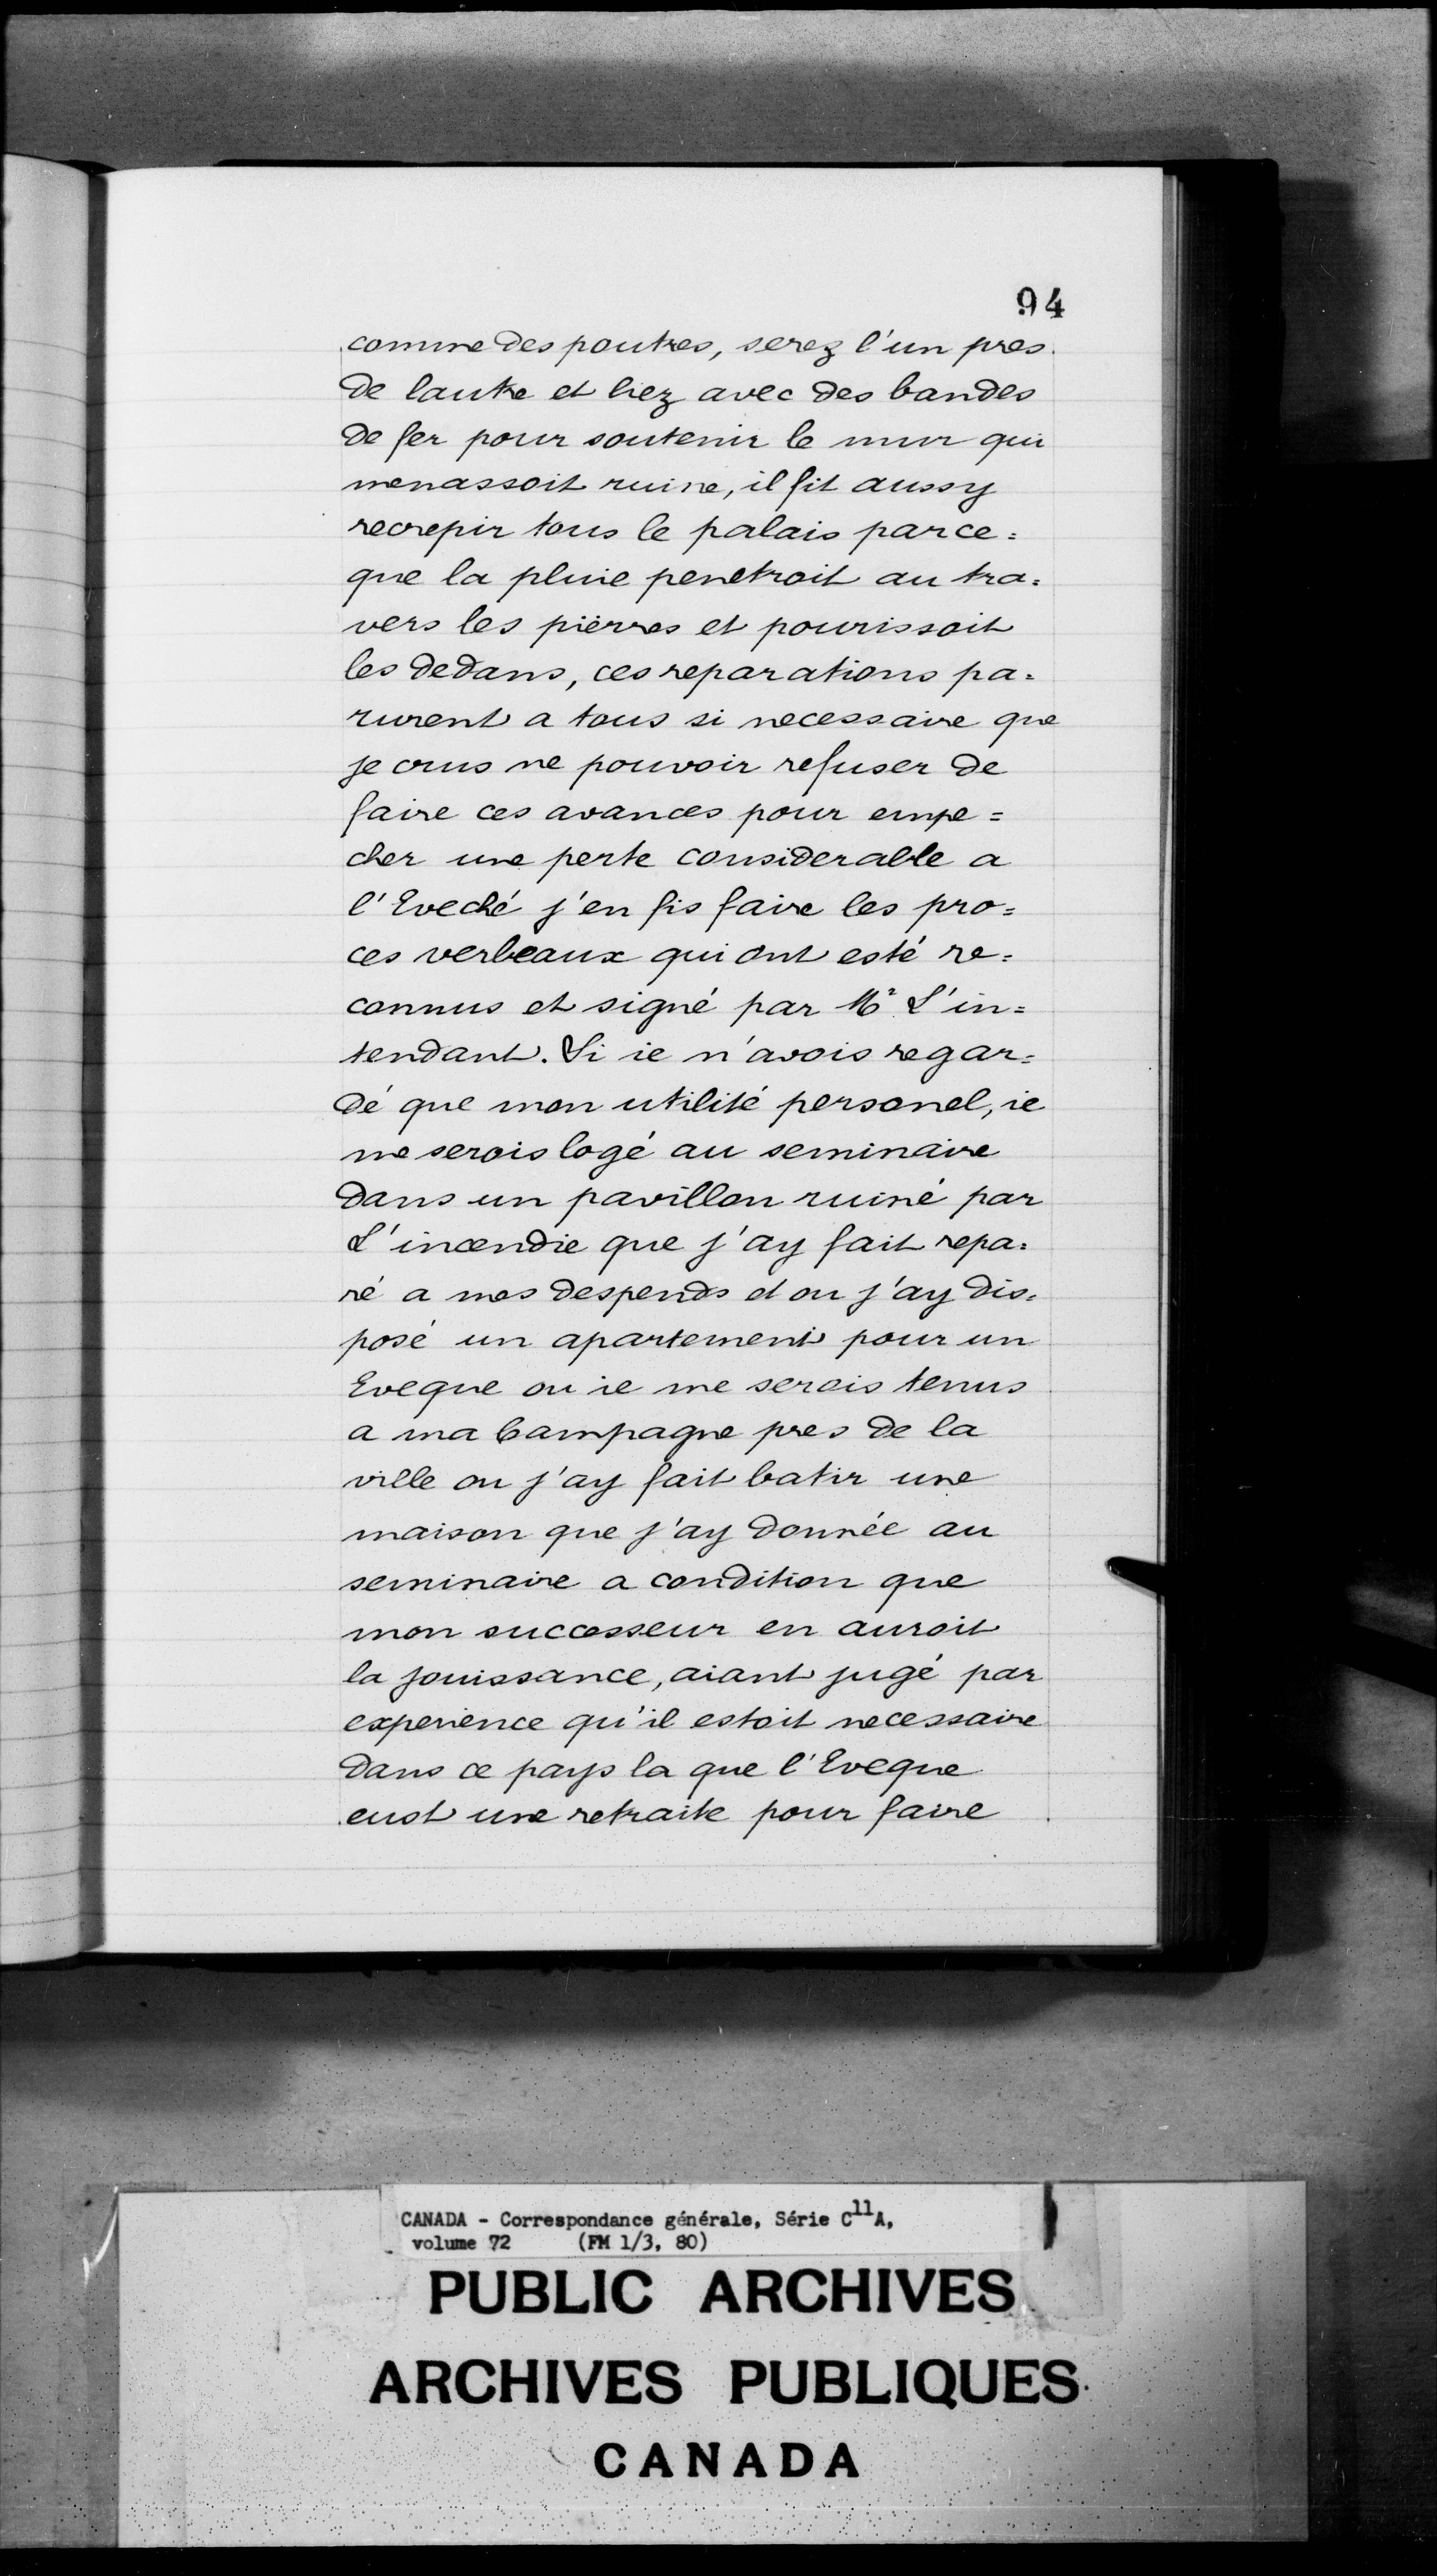 94
comme des poutres, serez l'un pres
de lautre et liez avec des bandes
de fer pour soutenir le mur qui
menassoit ruine, il fit aussy
recrepir tous le palais parce=
que la pluie penetroit au tra=
vers les pierres et pourissoit
les dedans, ces reparations pa=
rurent a tous si necessaire que
je crus ne pouvoir refuser de
faire ces avances pour empe=
cher une perte considerable a
l'Eveché j'en fis faire les pro=
ces verbeaux qui ont esté re=
connus et signé par Mr L'in=
tendant. Si ie n'avois regar=
dé que mon utilité personel, ie
me serois logé au seminaire
dans un pavillon ruiné par
L'incendie que j'ay fait repa=
ré a mes despends et ou j'ay dis=
posé un apartement pour un
Eveque ou ie me serois tenus
a ma Campagne pres de la
ville ou j'ay fait batir une
maison que j'ay donnée au
seminaire a condition que
mon successeur en auroit
la jouissance, aiant jugé par
experience qu'il estoit necessaire
dans ce pays la que l'Eveque
eust une retraite pour faire
CANADA - Correspondance générale, Série C11A,
volume 72 (FM 1/3, 80)
PUBLIC ARCHIVES
ARCHIVES PUBLIQUES
CANADA